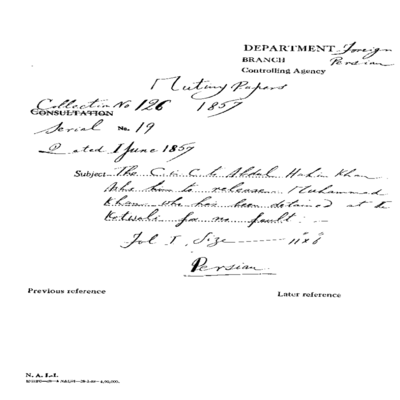 DEPARTMENT Foreign
BRANCH Persian
Controlling Agency
Mutiny Papers
Collection No 126 1857
CONSULTATION
Serial No. 19
Dated 1 June 1857
Subject The C in C to Abdul Hakim Khan
Asks him to release Muhammad
Khan who has been detained at the
Kotwali for no fault.
Fol. 1. Size
Persian
Previous reference
Later reference
N. A. I.